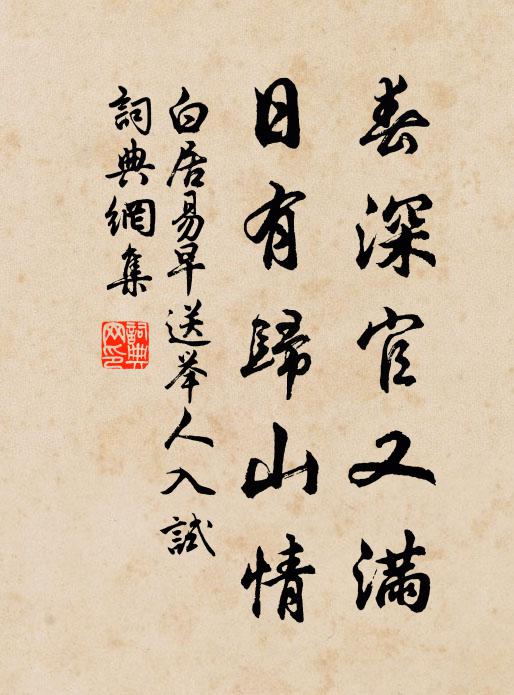 春深官又滿
日有歸山情
白居易早送举人入試
詞典網集
詞典網印